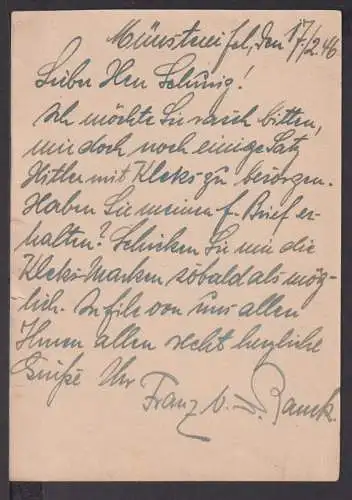 Münstereifel, den 17/2.46
Lieber Herr Schunig!
Ich möchte Sie rasch bitten,
mir doch noch einige Satz
Hitler mit Kleks zu besorgen.
Haben Sie meinen f-Brief er-
halten? Schicken Sie mir die
Kleks-Marken sobald als mög-
lich. In Eile von uns allen
Ihnen allen recht herzliche
Grüße Ihr Franz v.